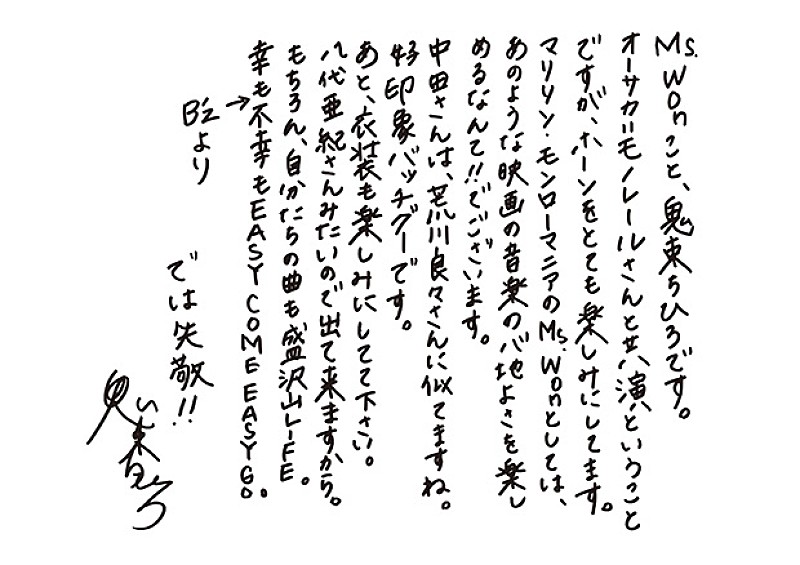 Ms. Wonこと、鬼束ちひろです。
オーサカ=モノレールさんと共演ということ
ですが、ホーンをとても楽しみにしてます。
マリリン・モンローマニアのMs. Wonとしては、
あのような映画の音楽の心地よさを楽し
めるなんて!!でございます。
中田さんは、荒川良々さんに似てますね。
好印象バッチグーです。
あと、衣装も楽しみにしてて下さい。
八代亜紀さんみたいので出て来ますから。
もちろん、自分たちの曲も盛沢山LIFE。
幸も不幸もEASY COME EASY GO。
B'zより→
では失敬!!
鬼束ちひろ